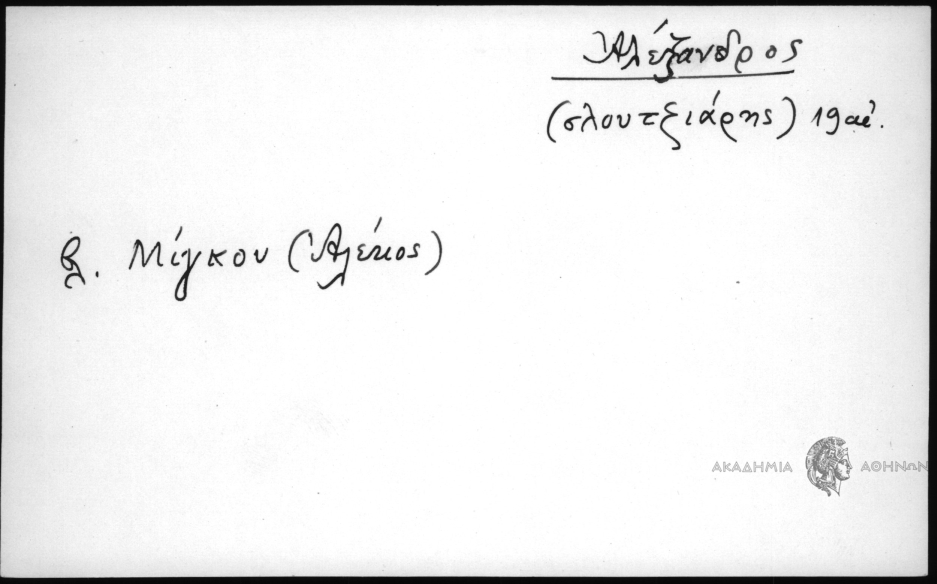 Ἀλέξανδρος
(σλουτζιάρης) 19 αἰ.
βλ. Μίγκου (Ἀλέκος)
ΑΚΑΔΗΜΙΑ ΑΘΗΝΩΝ